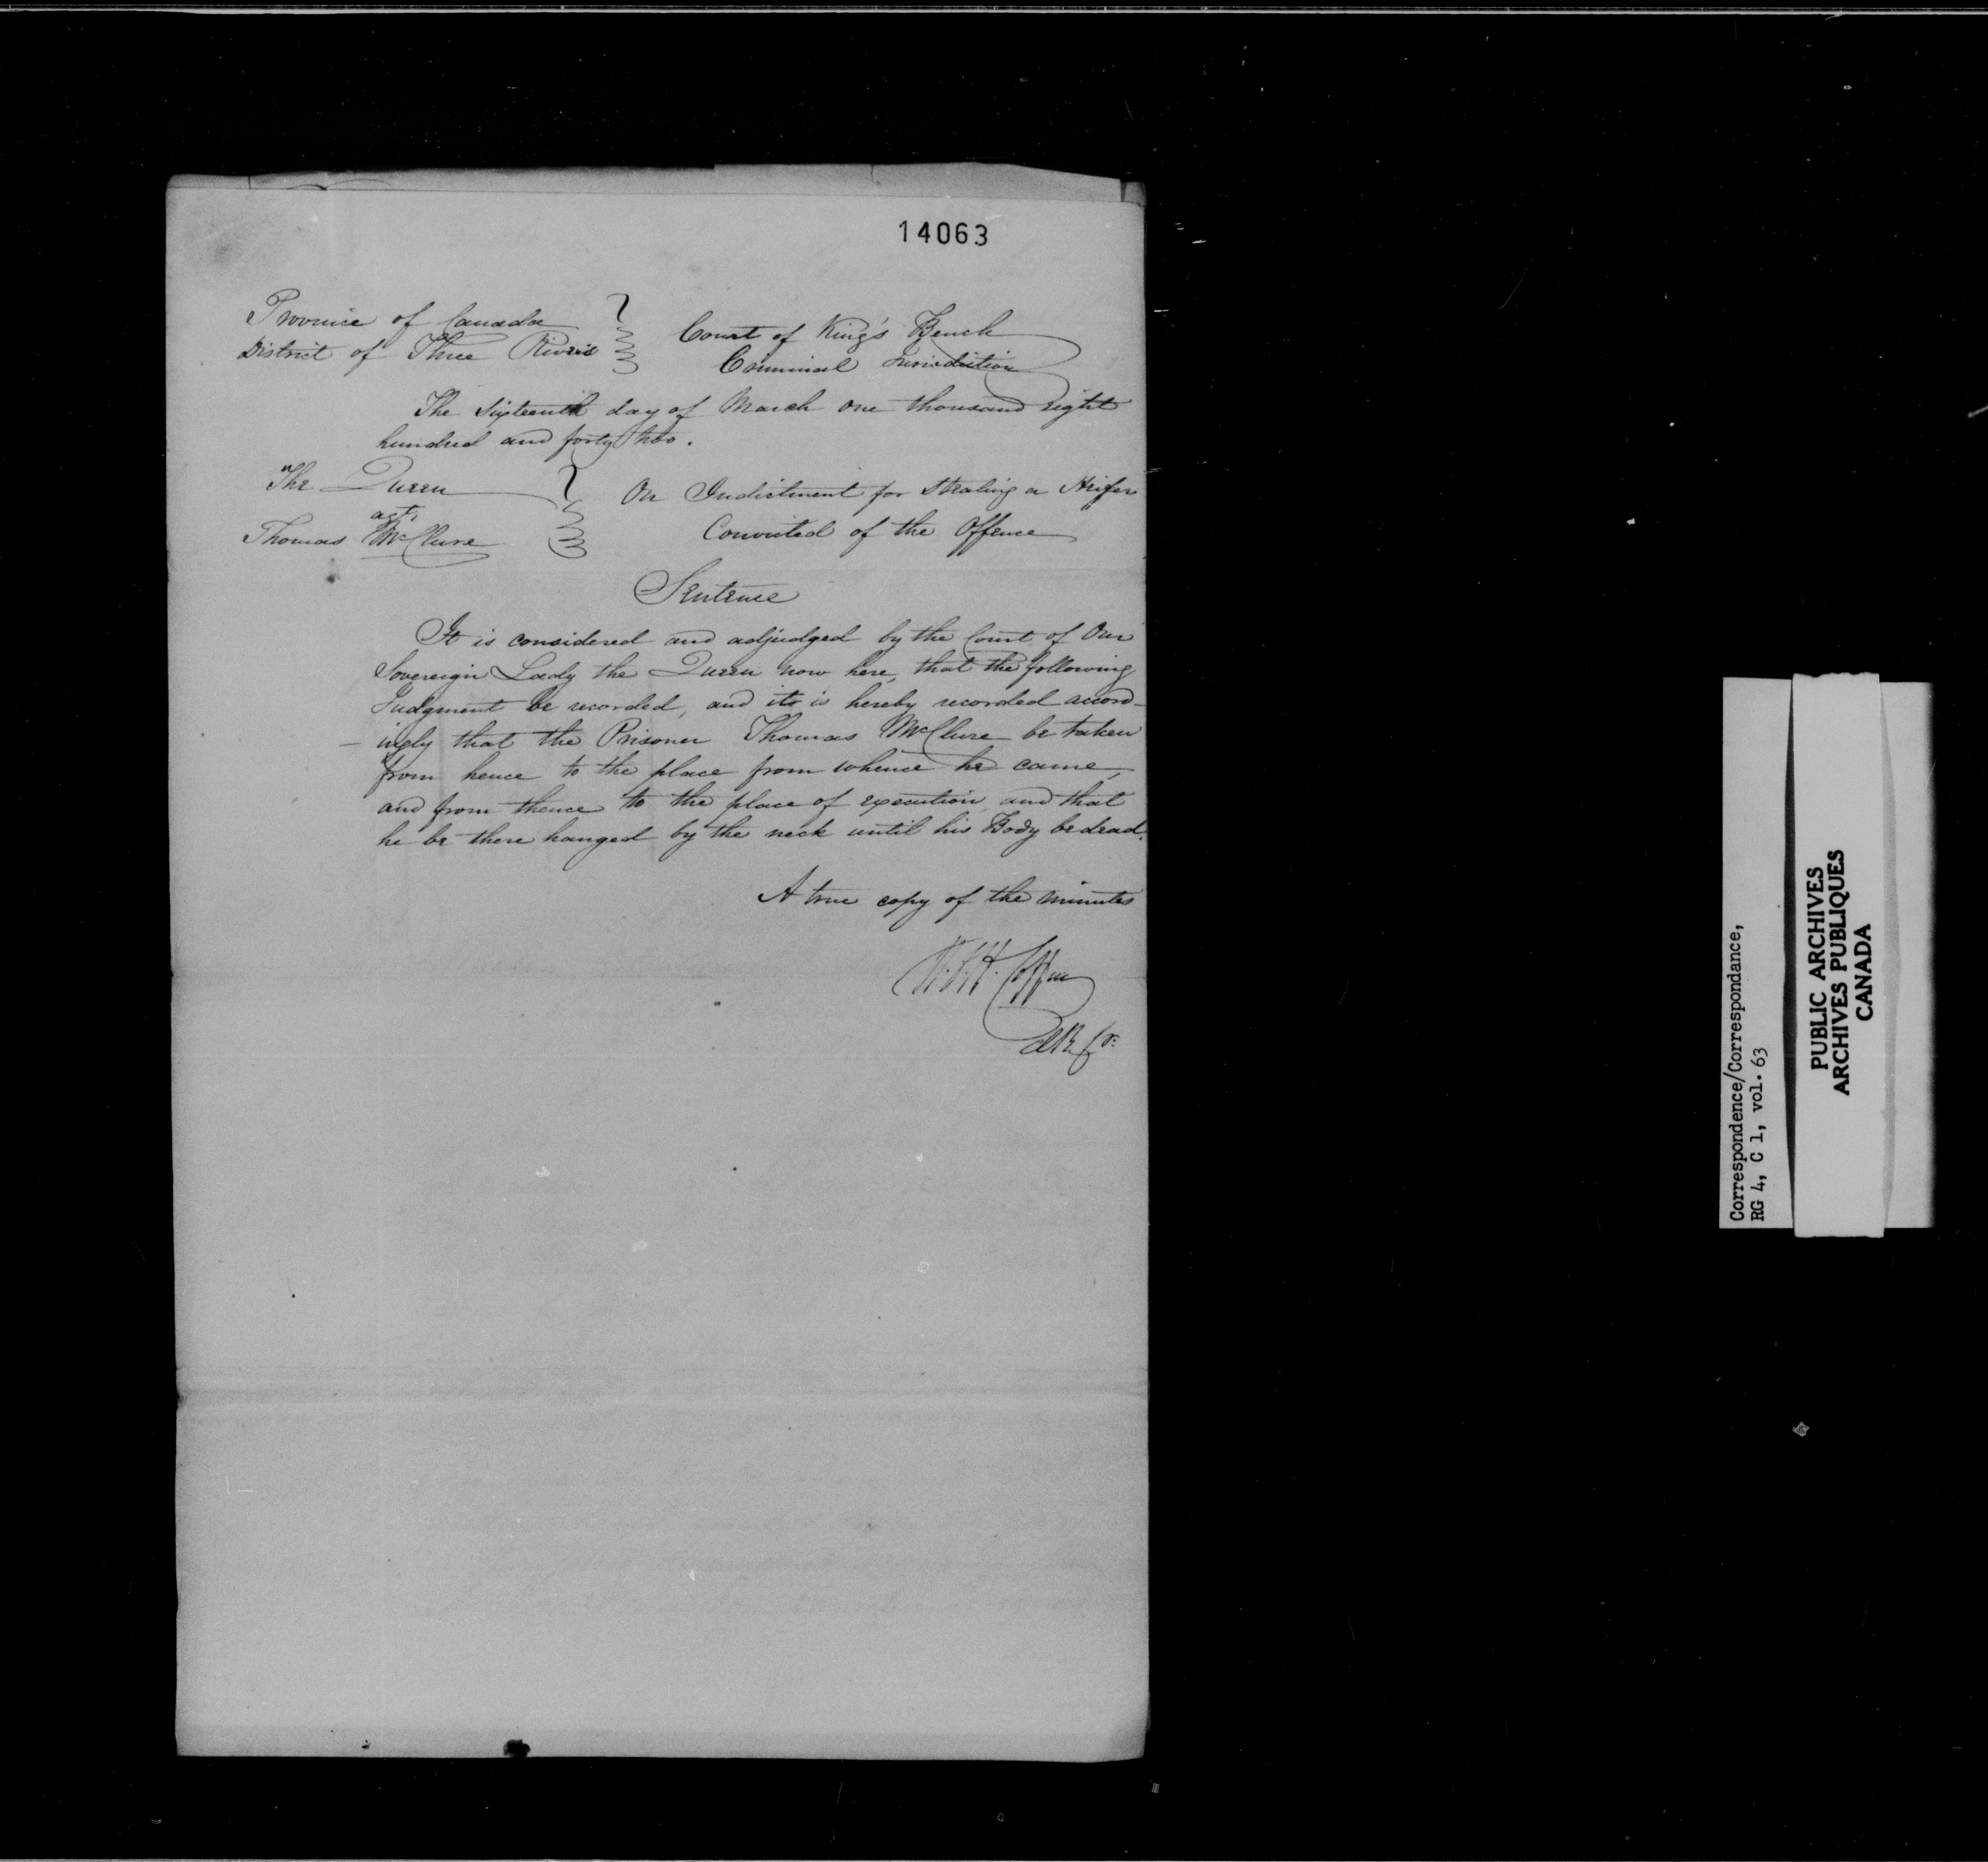 14063
Province of Canada
District of Three Rivers
Court of King's Bench
Criminal Jurisdiction
The Sixteenth day of March one thousand eight
hundred and forty two.
The Queen
agt.
Thomas McClure
On Indictment for Stealing a Heifer
Convicted of the Offence
Sentence
It is considered and adjudged by the Court of Our
Sovereign Lady the Queen now here, that the following
Judgment be recorded, and it is hereby recorded accord-
ingly that the Prisoner Thomas McClure be taken
from hence to the place from whence he came,
and from thence to the place of execution, and that
he be there hanged by the neck until his Body be dead.
A true copy of the minutes
Coffin
Correspondence/Correspondance,
RG 4, C 1, vol. 63
PUBLIC ARCHIVES
ARCHIVES PUBLIQUES
CANADA